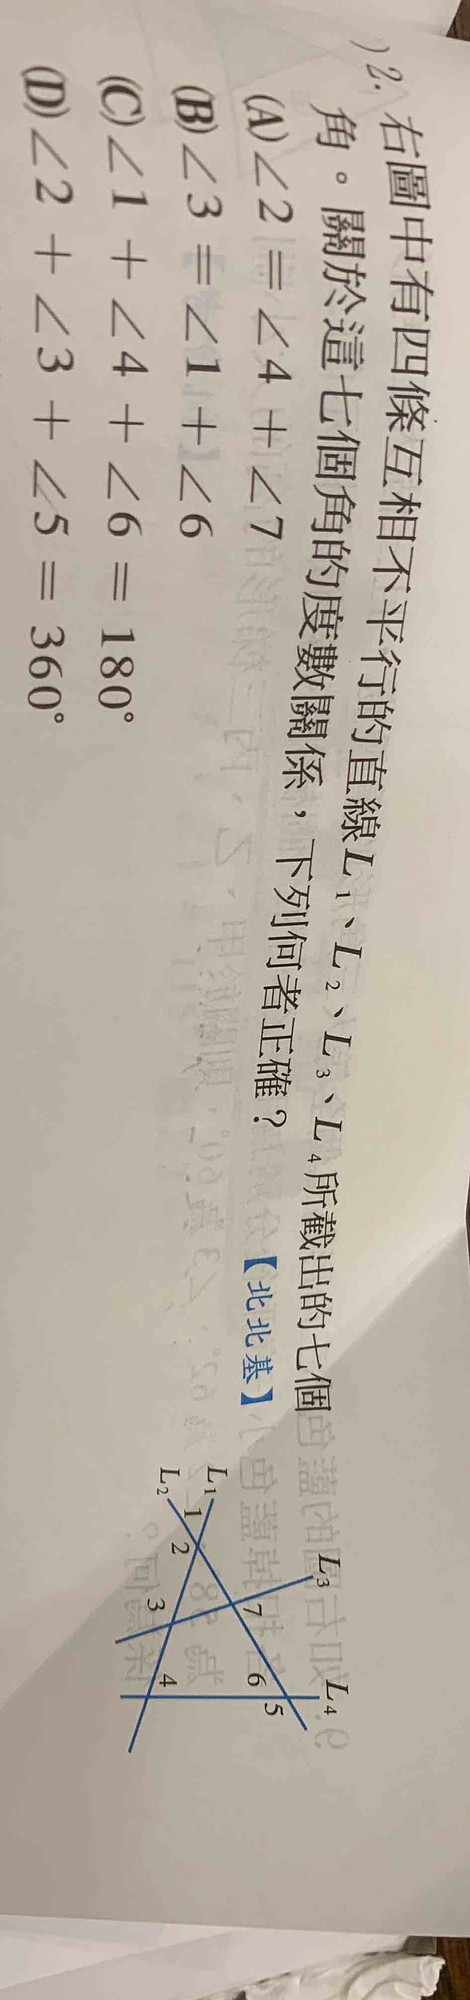 )2. 右圖中有四條互相不平行的直線L₁、L₂、L₃、L₄所截出的七個
角。關於這七個角的度數關係，下列何者正確？ 【北北基】
(A)∠2＝∠4＋∠7
(B)∠3＝∠1＋∠6
(C)∠1＋∠4＋∠6＝180°
(D)∠2＋∠3＋∠5＝360°
L₃ L₄
L₁
L₂
1
2
7
3
6
5
4